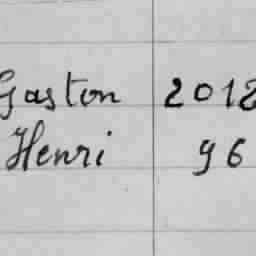 Gaston 2012
Henri 96